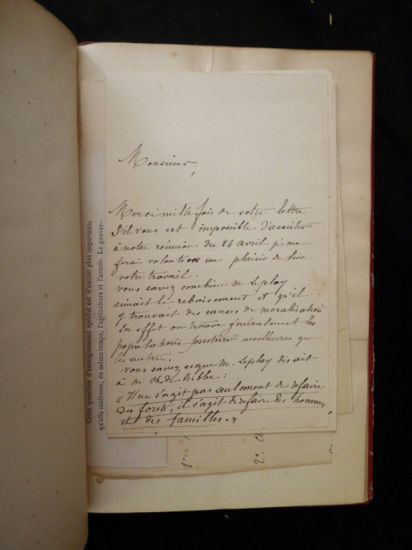 Monsieur,
Merci mille fois de votre lettre
S'il vous est impossible d'assister
à notre réunion du 24 avril je me
ferai volontiers un plaisir de lire
votre travail.
vous savez combien M. Leplay
aimait le reboisement et qu'il
y trouvait des causes de moralisation
En effet on trouve généralement les
populations forestière meilleures que
les autres.
vous savez ce que M. Leplay disait
à M. Ch de Ribbe:
« Il ne s'agit pas seulement de refaire
des forêts, il s'agit de refaire des hommes
et des familles. »
Cette question d'enseignement spécial est d'autant plus importante
qu'elle intéresse, en même temps, l'agriculture et l'armée. Le gouver-
1°
2°